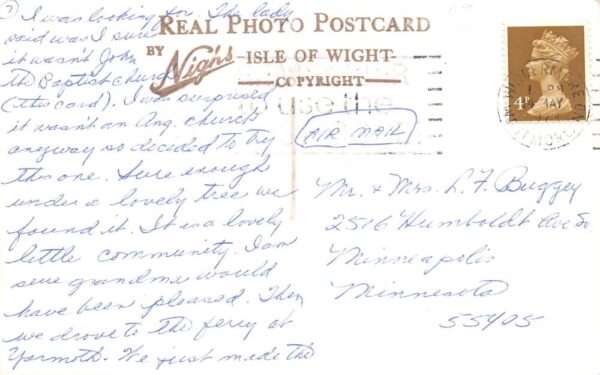 7)
I was looking for. The lady
said was I sure
it wasn't John
the Baptist church
(this card). I was surprised
it wasn't an Ang. church
anyway so decided to try
this one. Sure enough
under a lovely tree we
found it. It is a lovely
little community. I am
sure grandma would
have been pleased. Then
we drove to the ferry at
Yarmoth. We just made the
REAL PHOTO POSTCARD
BY Nigh's ISLE OF WIGHT
COPYRIGHT
use the
AIR MAIL
4P
PM
MAY
Mr. & Mrs. L. F. Buggey
2516 Humboldt Ave So.
Minneapolis
Minnesota
55405